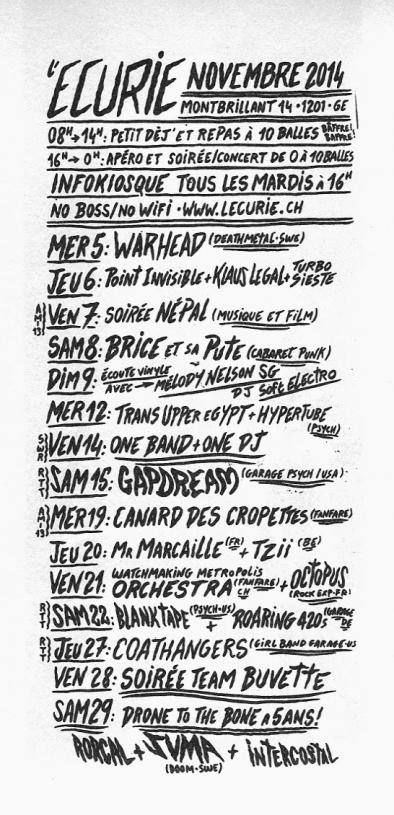 L'ECURIE NOVEMBRE 2014
MONTBRILLANT 14 · 1201 · GE
08H → 14H : PETIT DÈJ' ET REPAS À 10 BALLES BÂFFRE! BAFFRE!
16H → 0H : APÉRO ET SOIRÉE/CONCERT DE 0 À 10 BALLES
INFOKIOSQUE TOUS LES MARDIS À 16H
NO BOSS/NO WIFI · WWW.LECURIE.CH
MER 5 : WARHEAD (DEATHMETAL · SWE)
JEU 6 : POINT INVISIBLE + KLAUS LEGAL + TURBO SIESTE
AMI13 VEN 7 : SOIRÉE NÉPAL (MUSIQUE ET FILM)
SAM 8 : BRICE ET SA PUTE (CABARET PUNK)
DIM 9 : ÉCOUTE VINYLE AVEC → MÉLODY NELSON SG
DJ SOFT ELECTRO
MER 12 : TRANS UPPER EGYPT + HYPERTUBE
(PSYCH)
SWR VEN 14 : ONE BAND + ONE DJ
RTT SAM 15 : GAPDREAM (GARAGE PSYCH / USA)
AMI13 MER 19 : CANARD DES CROPETTES (FANFARE)
JEU 20 : MR MARCAILLE (FR) + TZII (BE)
VEN 21 : WATCHMAKING METROPOLIS ORCHESTRA (FANFARE) CH + OCTOPUS (ROCK EXP · FR)
RTT SAM 22 : BLANKTAPE (PSYCH · US) + ROARING 420S (GARAGE DE
RTT JEU 27 : COATHANGERS (GIRL BAND GARAGE · US
VEN 28 : SOIRÉE TEAM BUVETTE
SAM 29 : DRONE TO THE BONE A 5 ANS!
RORCAL + JUMA + INTERCOSTAL
(DOOM · SWE)